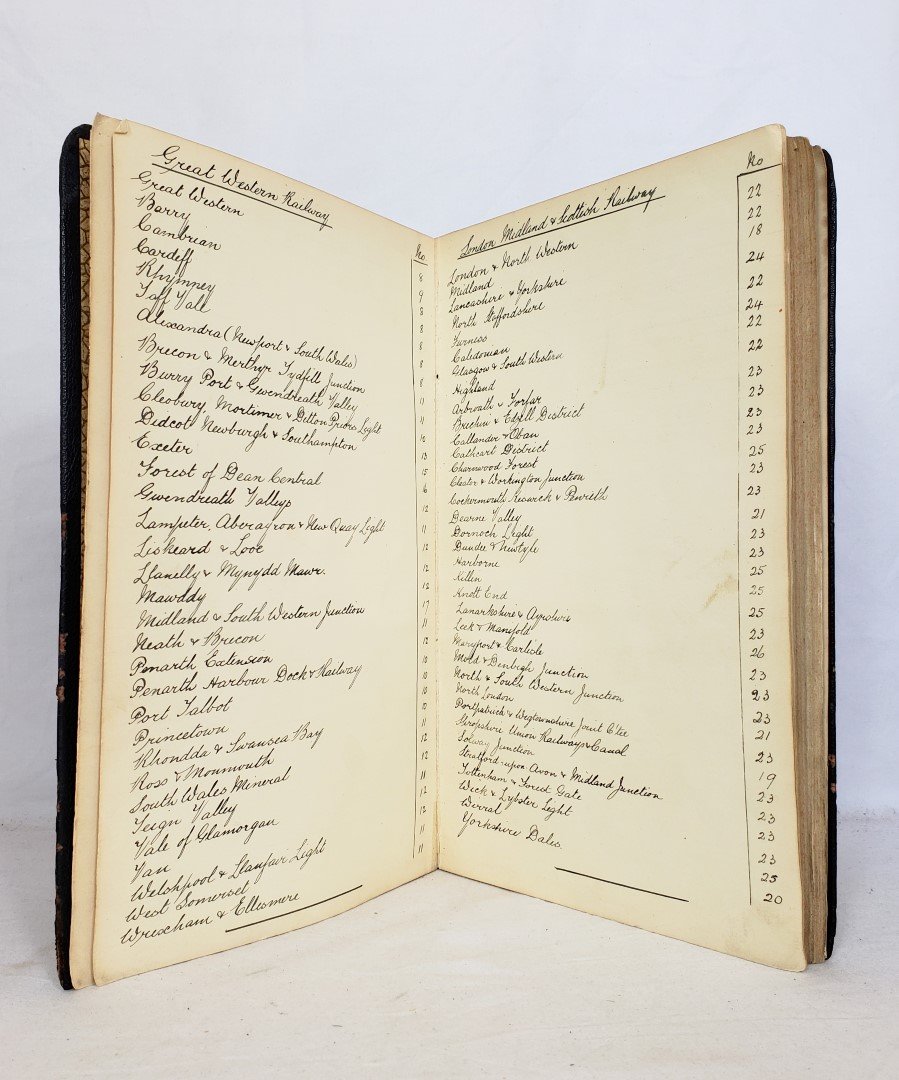 Great Western Railway
No.
Great Western 8
Barry 9
Cambrian 8
Cardiff 8
Rhymney 8
Taff Vale 8
Alexandra (Newport & South Wales) 11
Brecon & Merthyr Tydfill Junction 11
Burry Port & Gwendreath Valley
Cleobury, Mortimer & Ditton Priors Light
Didcot Newburgh & Southampton
Exeter
Forest of Dean Central
Gwendreath Valleys
Lampeter, Aberayron & New Quay Light
Liskeard & Looe
Llanelly & Mynydd Mawr.
Mawddy
Midland & South Western Junction
Neath & Brecon
Penarth Extension
Penarth Harbour Dock & Railway
Port Talbot
Princetown
Rhondda & Swansea Bay
Ross & Monmouth
South Wales Mineral
Teign Valley
Vale of Glamorgan
Van
Welshpool & Llanfair Light
West Somerset
Wrexham & Ellesmere
London Midland & Scottish Railway
No
London & North Western 22
Midland 22
Lancashire & Yorkshire 18
North Staffordshire 24
Furness 22
Caledonian 24
Glasgow & South Western 22
Highland 22
Arbroath & Forfar 23
Brechin & Edzell District 23
Callander & Oban 23
Cathcart District 23
Charnwood Forest 25
Cleator & Workington Junction 23
Cockermouth Keswick & Penrith 23
Dearne Valley 21
Dornoch Light 23
Dundee & Newtyle 23
Harborne 25
Killin 25
Knott End 25
Lanarkshire & Ayrshire 23
Leek & Manifold 26
Maryport & Carlisle 23
Mold & Denbigh Junction 23
North & South Western Junction 23
North London 21
Portpatrick & Wigtownshire Joint C'tee 23
Shropshire Union Railways & Canal 19
Solway Junction 23
Stratford-upon Avon & Midland Junction 23
Tottenham & Forest Gate 23
Wick & Lybster Light 23
Wirral 25
Yorkshire Dales. 20